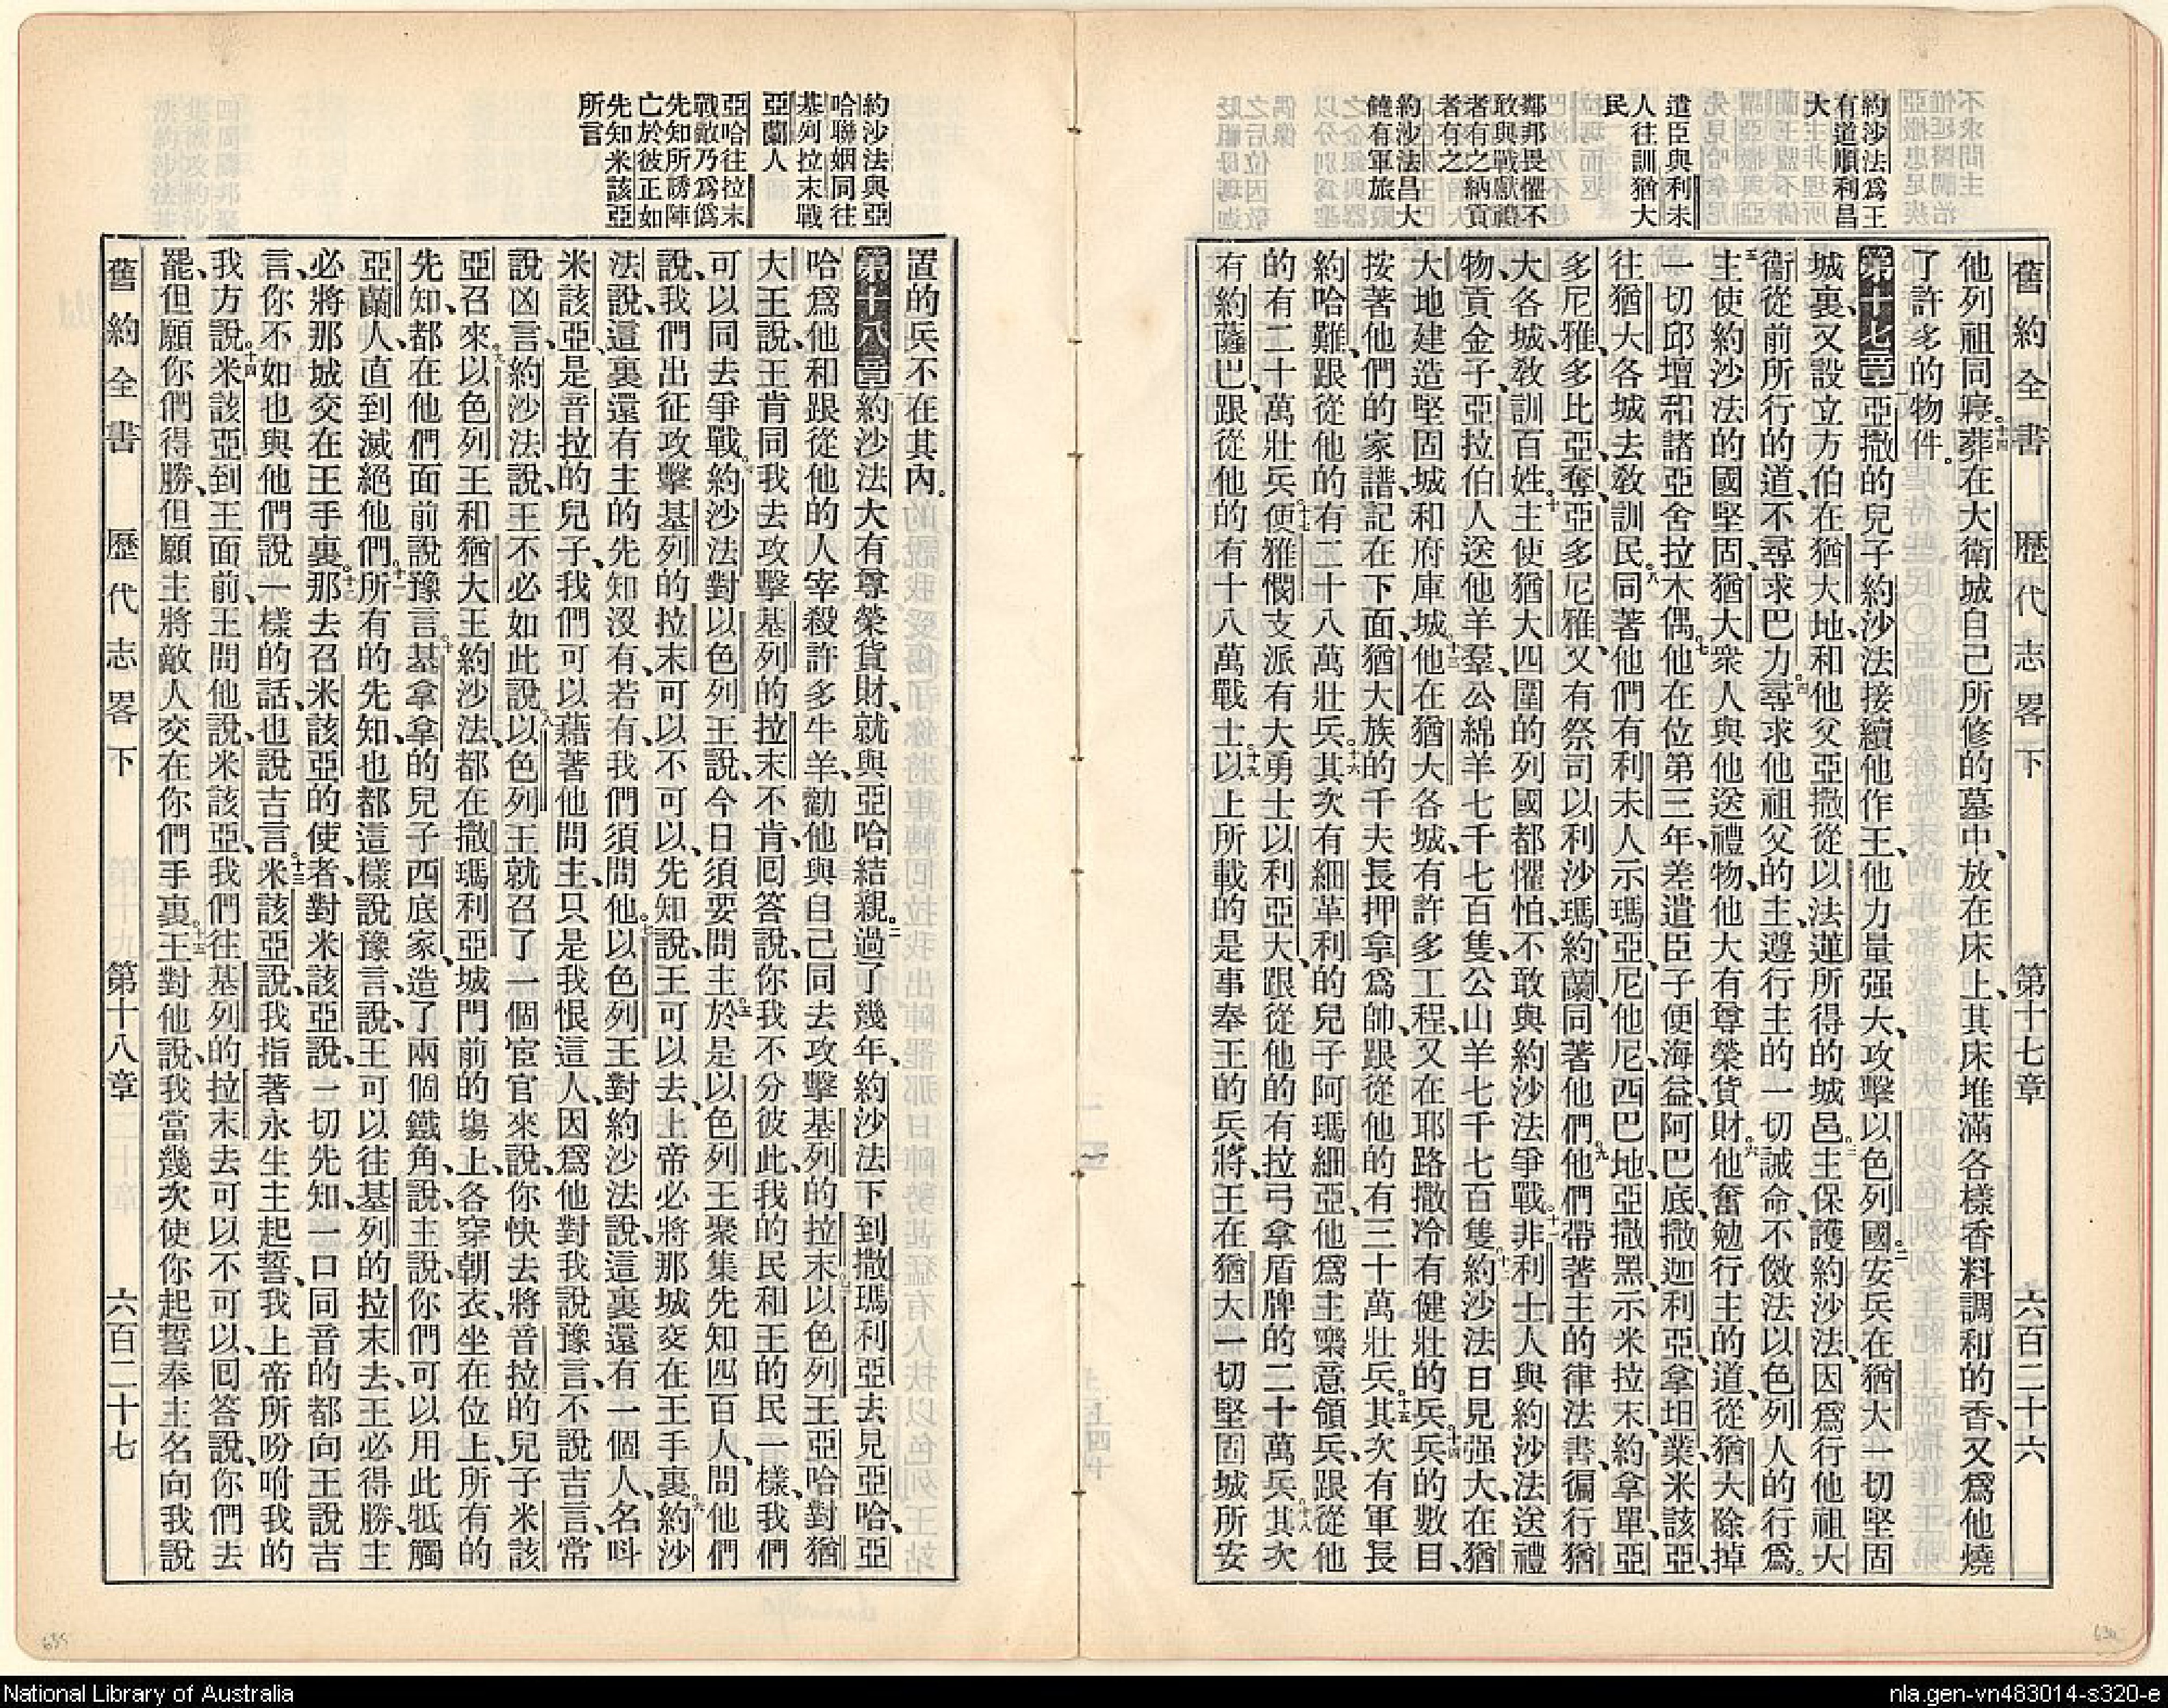 舊約全書 歷代志畧下 第十七章 六百二十六
約沙法爲王
有道順利昌
大
遣臣與利未
人往訓猶大
民
鄰邦畏懼不
敢與戰獻禮
者有之納貢
者有之
約沙法昌大
饒有軍旅
他列祖同寢、十四葬在大衞城自己所修的墓中、放在床上、其床堆滿各樣香料調和的香、又爲他燒
了許多的物件。
第十七章 亞撒的兒子約沙法接續他作王、他力量强大、攻擊以色列國。二安兵在猶大一切堅固
城裏、又設立方伯在猶大地、和他父亞撒從以法蓮所得的城邑。三主保護約沙法、因爲行他祖大
衞從前所行的道、不尋求巴力。四尋求他祖父的主、遵行主的一切誡命、不傚法以色列人的行爲。
五主使約沙法的國堅固、猶大衆人與他送禮物、他大有尊榮貨財。六他奮勉行主的道、從猶大除掉
一切邱壇和諸亞舍拉木偶。七他在位第三年、差遣臣子便海益、阿巴底、撒迦利亞、拿坦業、米該亞、
往猶大各城去敎訓民。八同著他們有利未人示瑪亞、尼他尼、西巴地、亞撒黑、示米拉末、約拿單、亞
多尼雅、多比亞、奪亞多尼雅、又有祭司以利沙瑪、約蘭、同著他們。九他們帶著主的律法書、徧行猶
大各城、敎訓百姓。十主使猶大四圍的列國都懼怕、不敢與約沙法爭戰。十一非利士人與約沙法送禮
物、貢金子、亞拉伯人送他羊羣、公綿羊七千七百隻、公山羊七千七百隻。十二約沙法日見强大、在猶
大地建造堅固城和府庫城。十三他在猶大各城、有許多工程、又在耶路撒冷有健壯的兵。十四兵的數目、
按著他們的家譜記在下面、猶大族的千夫長押拿爲帥、跟從他的有三十萬壯兵。十五其次有軍長
約哈難、跟從他的有二十八萬壯兵。十六其次有細革利的兒子阿瑪細亞、他爲主樂意領兵、跟從他
的有二十萬壯兵。十七便雅憫支派有大勇士以利亞大、跟從他的有拉弓拿盾牌的二十萬兵。十八其次
有約薩巴、跟從他的有十八萬戰士。十九以上所載的是事奉王的兵將、王在猶大一切堅固城所安
約沙法與亞
哈聯姻同往
基列拉末戰
亞蘭人
亞哈往拉末
戰敵乃爲僞
先知所誘陣
亡於彼正如
先知米該亞
所言
置的兵不在其內。
第十八章 約沙法大有尊榮貨財、就與亞哈結親。二過了幾年、約沙法下到撒瑪利亞去見亞哈、亞
哈爲他和跟從他的人宰殺許多牛羊、勸他與自己同去攻擊基列的拉末。三以色列王亞哈對猶
大王說、王肯同我去攻擊基列的拉末不肯、回答說、你我不分彼此、我的民和王的民一樣、我們
可以同去爭戰。四約沙法對以色列王說、今日須要問主。五於是以色列王聚集先知四百人、問他們
說、我們出征攻擊基列的拉末可以不可以、先知說、王可以去、上帝必將那城交在王手裏。六約沙
法說、這裏還有主的先知沒有、若有、我們須問他。七以色列王對約沙法說、這裏還有一個人、名呌
米該亞、是音拉的兒子、我們可以藉著他問主、只是我恨這人、因爲他對我說豫言、不說吉言、常
說凶言、約沙法說、王不必如此說。八以色列王就召了一個宦官來說、你快去將音拉的兒子米該
亞召來。九以色列王和猶大王約沙法、都在撒瑪利亞城門前的塲上、各穿朝衣、坐在位上、所有的
先知、都在他們面前說豫言。十基拿拿的兒子西底家、造了兩個鐵角、說、主說、你們可以用此牴觸
亞蘭人、直到滅絕他們。十一所有的先知、也都這樣說豫言、說、王可以往基列的拉末去、王必得勝、主
必將那城交在王手裏。十二那去召米該亞的使者、對米該亞說、一切先知、一口同音的都向王說吉
言、你不如也與他們說一樣的話、也說吉言。十三米該亞說、我指著永生主起誓、我上帝所吩咐我的
我方說。十四米該亞到王面前、王問他說、米該亞、我們往基列的拉末去可以不可以、回答說、你們去
罷、但願你們得勝、但願主將敵人交在你們手裏。十五王對他說、我當幾次使你起誓、奉主名向我說
舊約全書 歷代志畧下 第十八章 六百二十七
635
634
National Library of Australia
nla.gen-vn483014-s320-e